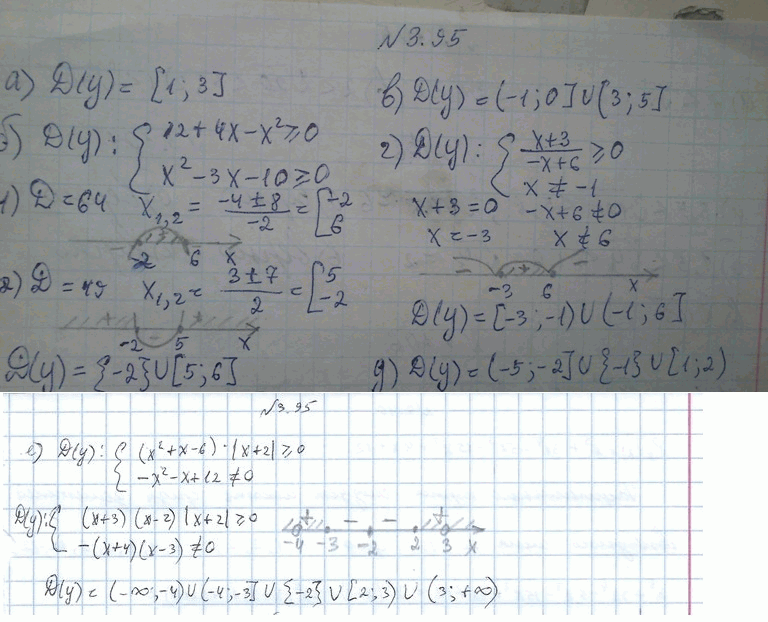 №3.95
а) D(y) = [1; 3]
б) D(y): { 12 + 4x - x² ≥ 0
x² - 3x - 10 ≥ 0
1) D = 64 x₁,₂ = (-4 ± 8)/(-2) = [ -2
6
-2 6 x
2) D = 49 x₁,₂ = (3 ± 7)/2 = [ 5
-2
-2 5 x
D(y) = {-2} ∪ [5; 6]
в) D(y) = (-1; 0] ∪ [3; 5]
г) D(y): { (x+3)/(-x+6) ≥ 0
x ≠ -1
x + 3 = 0 -x + 6 ≠ 0
x = -3 x ≠ 6
- + -
-3 6 x
D(y) = [-3; -1) ∪ (-1; 6]
д) D(y) = (-5; -2] ∪ {-1} ∪ [1; 2)
№3.95
е) D(y): { (x² + x - 6) · |x+2| ≥ 0
-x² - x + 12 ≠ 0
D(y): { (x+3) (x-2) |x+2| ≥ 0
-(x+4)(x-3) ≠ 0
+ - - +
-4 -3 -2 2 3 x
D(y) = (-∞; -4) ∪ (-4; -3] ∪ {-2} ∪ [2; 3) ∪ (3; +∞)